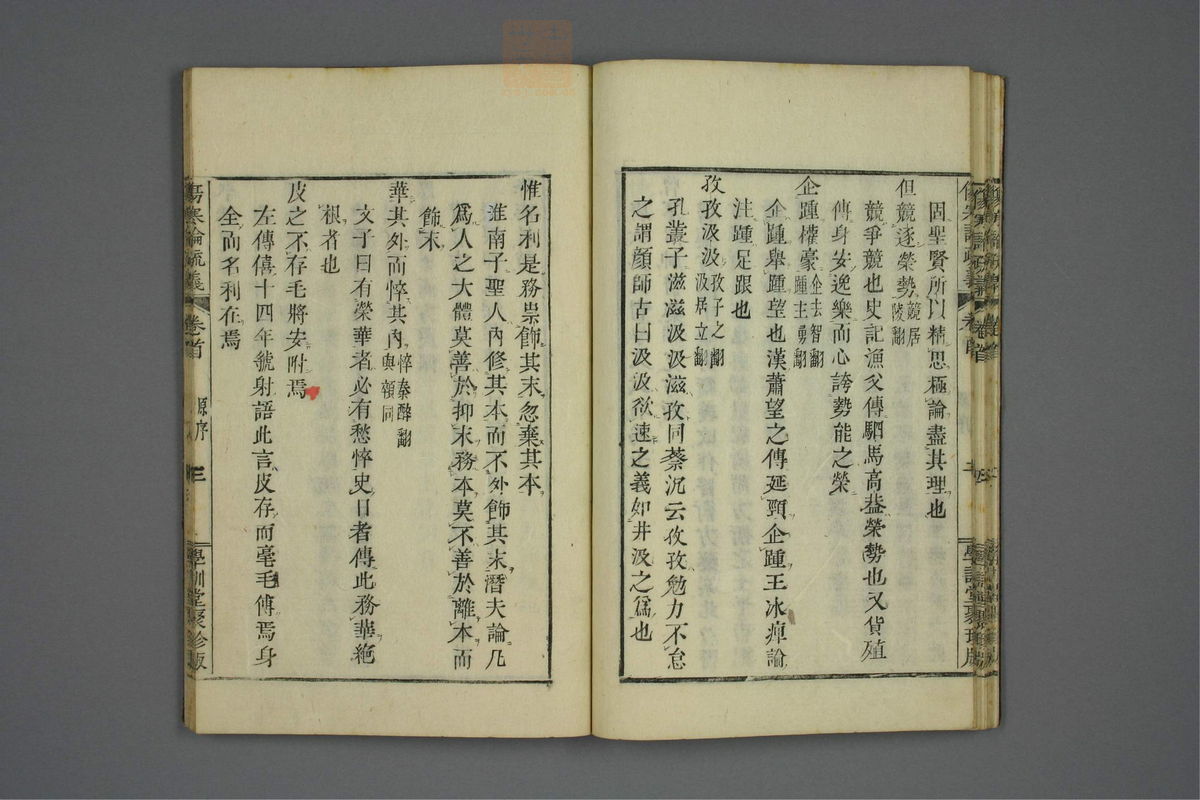 固聖賢所以精思極論盡其理也
但競逐榮勢競居陵翻
競爭競也史記漁父傳駟馬高葢榮勢也又貨殖
傳身安逸樂而心誇勢能之榮
企踵權豪企去智翻踵主勇翻
企踵舉踵望也漢蕭望之傳延頸企踵王冰痺論
注踵足跟也
孜孜汲汲孜子之翻汲居立翻
孔叢子滋滋汲汲滋孜同蔡沉云孜孜勉力不怠
之謂顏師古曰汲汲欲速之義如井汲之爲也
惟名利是務崇飾其末忽棄其本
淮南子聖人內修其本而不外飾其末潛夫論凡
爲人之大體莫善於抑末務本莫不善於離本而
飾末
華其外而悴其內悴秦醉翻與顇同
文子曰有榮華者必有愁悴史日者傳此務華絶
根者也
皮之不存毛將安附焉
左傳僖十四年虢射語此言皮存而毫毛傅焉身
全而名利在焉
傷寒論疏義 卷首 原序 三 學訓堂聚珍版